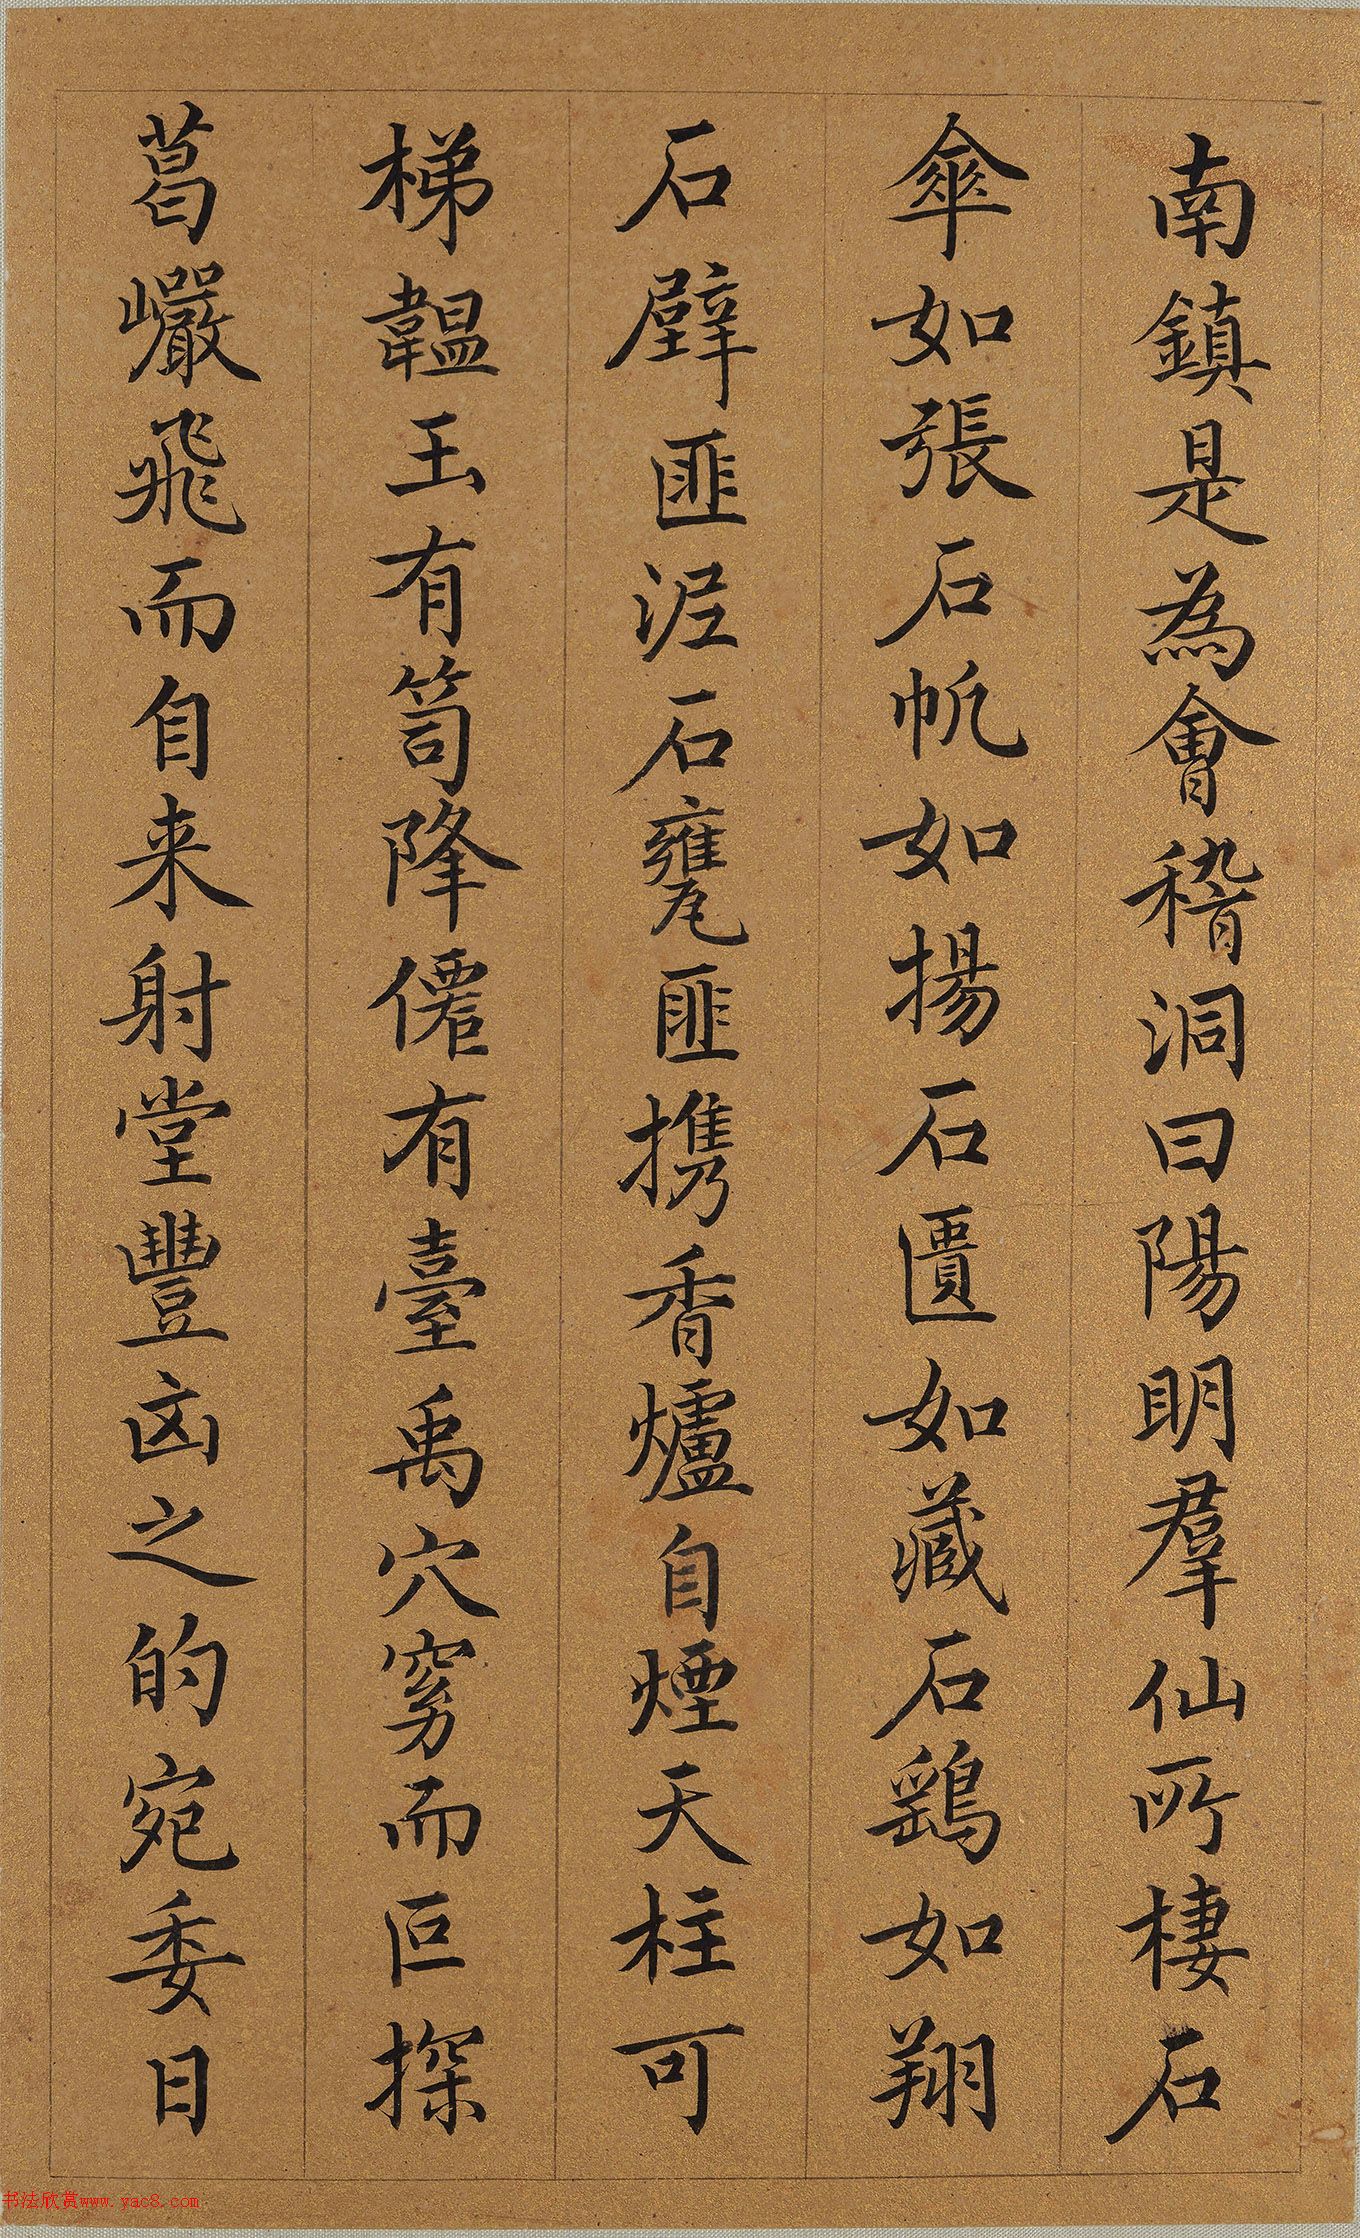 南鎮是為會稽洞曰陽明羣仙所棲石
傘如張石帆如揚石匱如藏石鷂如翔
石壁匪泥石甕匪携香爐自煙天柱可
梯韞玉有笥降僊有臺禹穴窈而叵探
葛巖飛而自来射堂豐凶之的宛委日
书法欣赏www.yac8.com